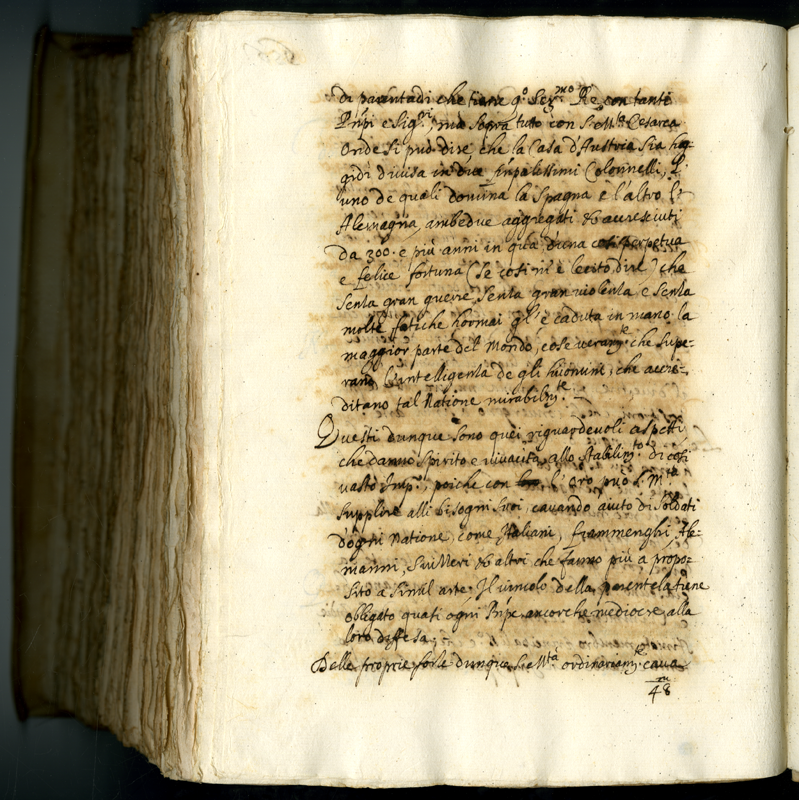 di parentadi che tiene q.º Ser.mo Rè con tanti
Pñpi e Sig.ri, mà sopra tutto con S. M.tà Cesarea
Onde si può dire, che la Casa d'Austria sia hog-
gidì divisa in due pñpalissimi Colonnelli, l'
uno de quali domina la Spagna e l'altro l'
Alemagna, ambedue aggregati & accresciuti
da 300. e più anni in quà d'una perpetua
e felice fortuna (se così m'è lecito dire) che
senza gran guerre, senza gran violenza e senza
molte fatiche hormai gl'è caduta in mano la
maggior parte del Mondo, cose veram.te che supe-
rano l'intelligenza de gli huomini, che accre-
ditano tal Natione mirabilm.te
Questi dunque sono quei riguardevoli aspetti
che danno spirito e vivacità allo stabilim.to di così
vasto Imp.º, poiche con l'oro può S. M.tà
supplire alli bisogni suoi, cavando aiuto di soldati
d'ogni Natione, come Italiani, frammenghi, Ale-
manni, Svizzeri & altri che fanno più a propo-
sito a simil arte; Il vincolo della parentela tiene
obligato quasi ogni Pñpe ancorche mediocre, alla
loro diffesa;
Delle proprie forze dunque S. M.tà ordinariam.te cava
48